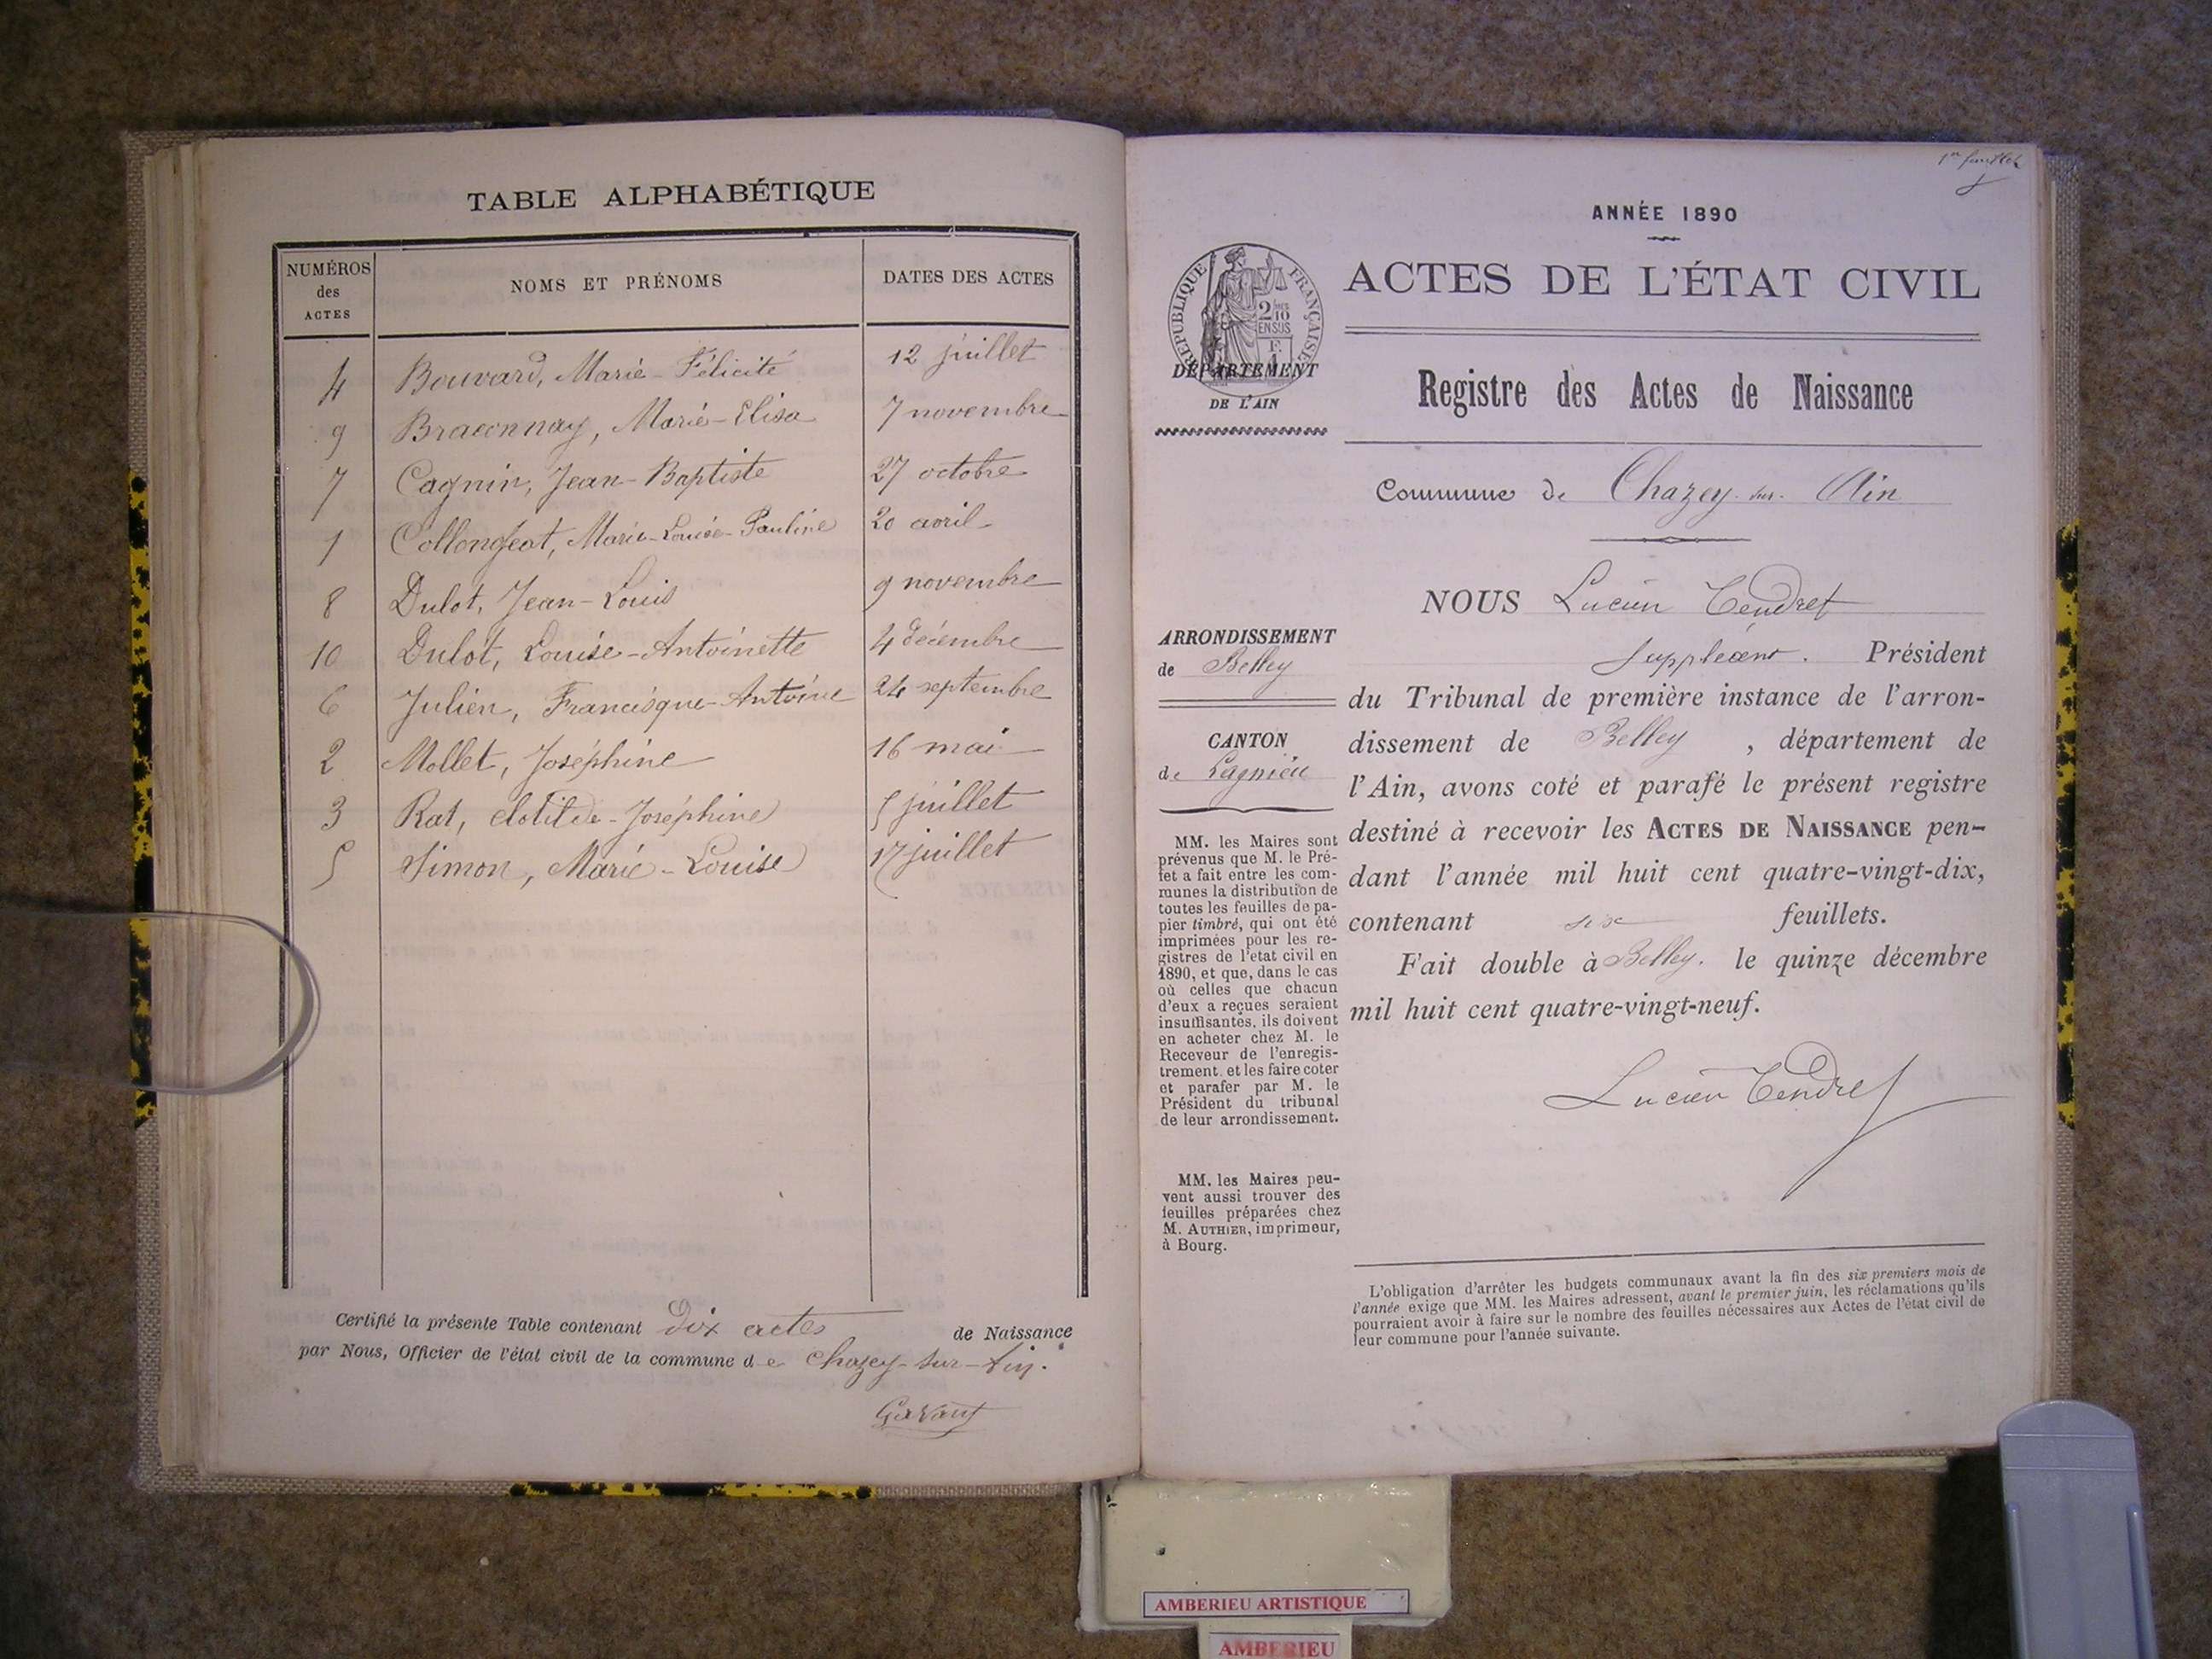 TABLE ALPHABÉTIQUE
NUMÉROS des ACTES NOMS ET PRÉNOMS DATES DES ACTES
4 Bouvard, Marie-Félicité 12 juillet
9 Braconnay, Marie-Elisa 7 novembre
7 Cagnin, Jean-Baptiste 27 octobre
1 Collongeat, Marie-Louise-Pauline 20 avril
8 Dulot, Jean-Louis 9 novembre
10 Dulot, Louise-Antoinette 4 décembre
6 Julien, Francisque-Antoine 24 septembre
2 Mollet, Joséphine 16 mai
3 Rat, clotilde-Joséphine 5 juillet
5 Simon, Marie-Louise 17 juillet
Certifié la présente Table contenant Dix actes de Naissance
par Nous, Officier de l'état civil de la commune de Chazey-sur-Ain.
1er feuillet
ANNÉE 1890
RÉPUBLIQUE FRANÇAISE
2/10 EN SUS
DÉPARTEMENT
DE L'AIN
ACTES DE L'ÉTAT CIVIL
Registre des Actes de Naissance
Commune de Chazey-sur-Ain
ARRONDISSEMENT
de Belley
CANTON
de Lagnieu
MM. les Maires sont
prévenus que M. le Pré-
fet a fait entre les com-
munes la distribution de
toutes les feuilles de pa-
pier timbré, qui ont été
imprimées pour les re-
gistres de l'etat civil en
1890, et que, dans le cas
où celles que chacun
d'eux a reçues seraient
insuffisantes, ils doivent
en acheter chez M. le
Receveur de l'enregis-
trement. et les faire coter
et parafer par M. le
Président du tribunal
de leur arrondissement.
MM. les Maires peu-
vent aussi trouver des
feuilles préparées chez
M. AUTHIER, imprimeur,
à Bourg.
NOUS Lucien Tendret
Suppléant. Président
du Tribunal de première instance de l'arron-
dissement de Belley, département de
l'Ain, avons coté et parafé le présent registre
destiné à recevoir les ACTES DE NAISSANCE pen-
dant l'année mil huit cent quatre-vingt-dix,
contenant six feuillets.
Fait double à Belley. le quinze décembre
mil huit cent quatre-vingt-neuf.
Lucien Tendret
L'obligation d'arrêter les budgets communaux avant la fin des six premiers mois de
l'année exige que MM. les Maires adressent, avant le premier juin, les réclamations qu'ils
pourraient avoir à faire sur le nombre des feuilles nécessaires aux Actes de l'état civil de
leur commune pour l'année suivante.
AMBERIEU ARTISTIQUE
AMBERIEU